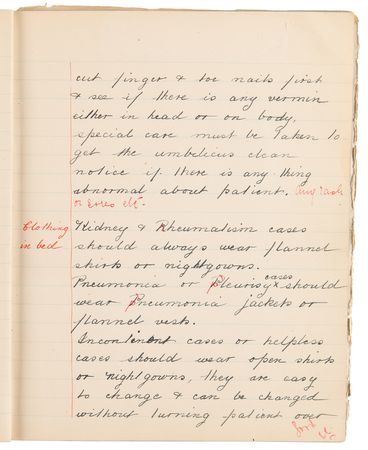 cut finger & toe nails first
& see if there is any vermin
either in head or on body,
special care must be taken to
get the umbelicus clean
notice if there is any thing
abnormal about patient. any rash
or sores etc.
Clothing
in bed
Kidney & Rheumatism cases
should always wear flannel
shirts or nightgowns.
Pneumonia or Pleurisy cases should
wear Pneumonia jackets or
flannel vests.
Incontinent cases or helpless
cases should wear open shirts
or nightgowns, they are easy
to change & can be changed
without turning patient over